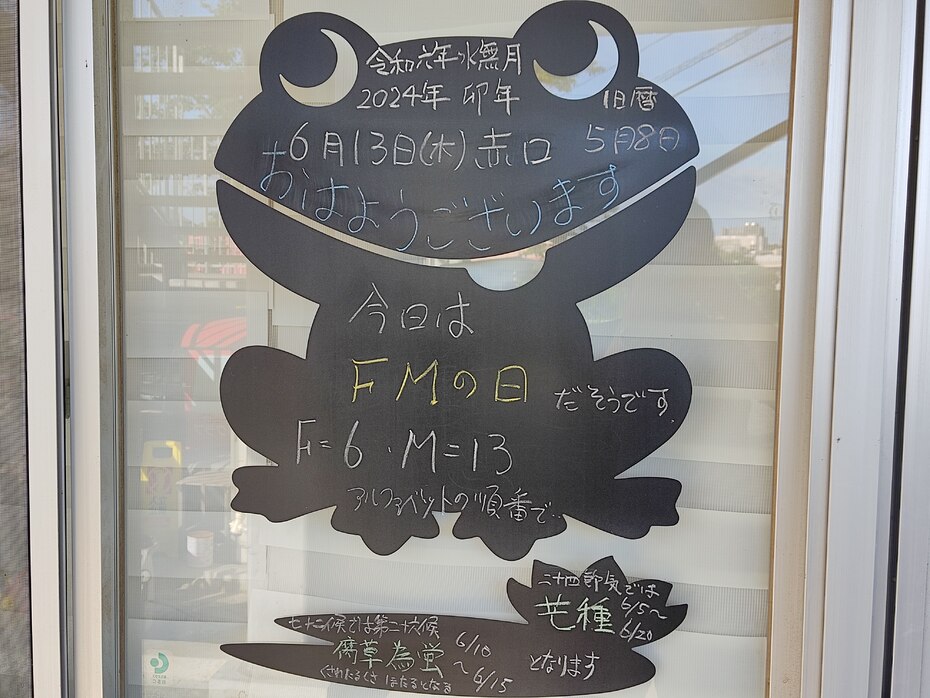 令和六年水無月
2024年 卯年
旧暦
6月13日(木)赤口
5月8日
おはようございます
今日は
FMの日
だそうです
F=6・M=13
アルファベットの順番で‥
二十四節気では
芒種
6/5〜
6/20
七十二候では第二十六候
腐草為蛍
6/10
〜6/15
となります
くされたるくさ ほたるとなる